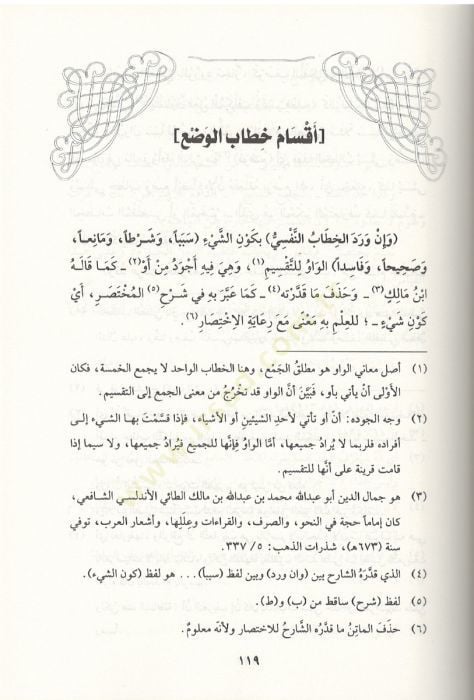 [أَقْسَامُ خِطَابِ الوَضْعِ]
(وَإِنْ وَرَدَ الخِطَابُ النَّفْسِيُّ) بِكَوْنِ الشَّيْءِ (سَبَباً، وَشَرْطاً، وَمَانِعاً،
وَصَحِيحاً، وَفَاسِداً) الوَاوُ لِلتَّقْسِيمِ(١)، وَهِيَ فِيهِ أَجْوَدُ مِنْ أَوْ(٢) ـ كَمَا قَالَهُ
ابْنُ مَالِكٍ(٣) ـ وَحَذَفَ مَا قَدَّرْتَه(٤) ـ كَمَا عَبَّرَ بِهِ في شَرْحِ(٥) المُخْتَصَرِ، أَيْ
كَوْنَ شَيْءٍ ـ ؛ لِلعِلْمِ بِهِ مَعْنًى مَعَ رِعَايَةِ الاِخْتِصَارِ(٦).
(١) أصل معاني الواو هو مطلقُ الجَمْع، وهنا الخطاب الواحد لا يجمع الخمسة، فكان
الأَوْلى أنْ يأتي بأو، فَبَيَّنَ أنَّ الواو قد تخْرُجُ من معنى الجمع إلى التقسيم.
(٢) وجه الجوده: أنّ أو تأتي لأحدِ الشيئينِ أو الأشياء، فإذا قسَّمْتَ بهـا الشـيء إلـى
أفراده فلربما لا يُرادُ جميعها، أمَّا الواوُ فإنَّها للجميع فيُرادُ جميعها، ولا سيما إذا
قامت قرينة على أنَّها للتقسيم.
(٣) هو جمال الدين أبو عبدالله محمد بن عبدالله بن مالك الطائي الأندلسي الشافعي،
كان إماماً حجة في النحو، والصرف، والقراءات وعِلَلِها، وأشعار العرب، توفي
سنة (٦٧٣هـ)، شذرات الذهب: ٥/ ٣٣٧.
(٤) الذي قدَّرَهُ الشارح بين (وان ورد) وبين لفظ (سبباً)... هو لفظ (كون الشيء).
(٥) لفظ (شرح) ساقط من (ب) و(ط).
(٦) حذَفَ الماتِنُ ما قدَّره الشَّارحُ للاختصار ولأنه معلومٌ.
١١٩